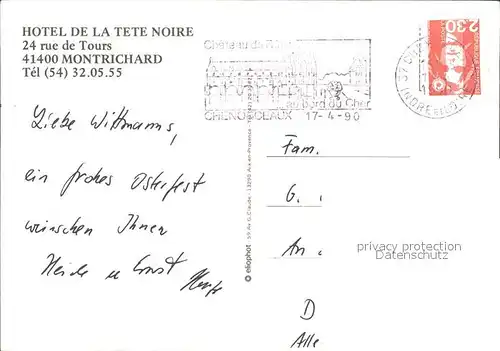 HOTEL DE LA TETE NOIRE
24 rue de Tours
41400 MONTRICHARD
Tél (54) 32.05.55
Château de
au bord du Cher
CHENONCEAUX 17-4-90
2,30
Liebe Wittmanns,
ein frohes Osterfest
wünschen Ihnen
Heide u Ernst
eliophot
Fam.
G.
An
D
Alle
privacy protection
Datenschutz